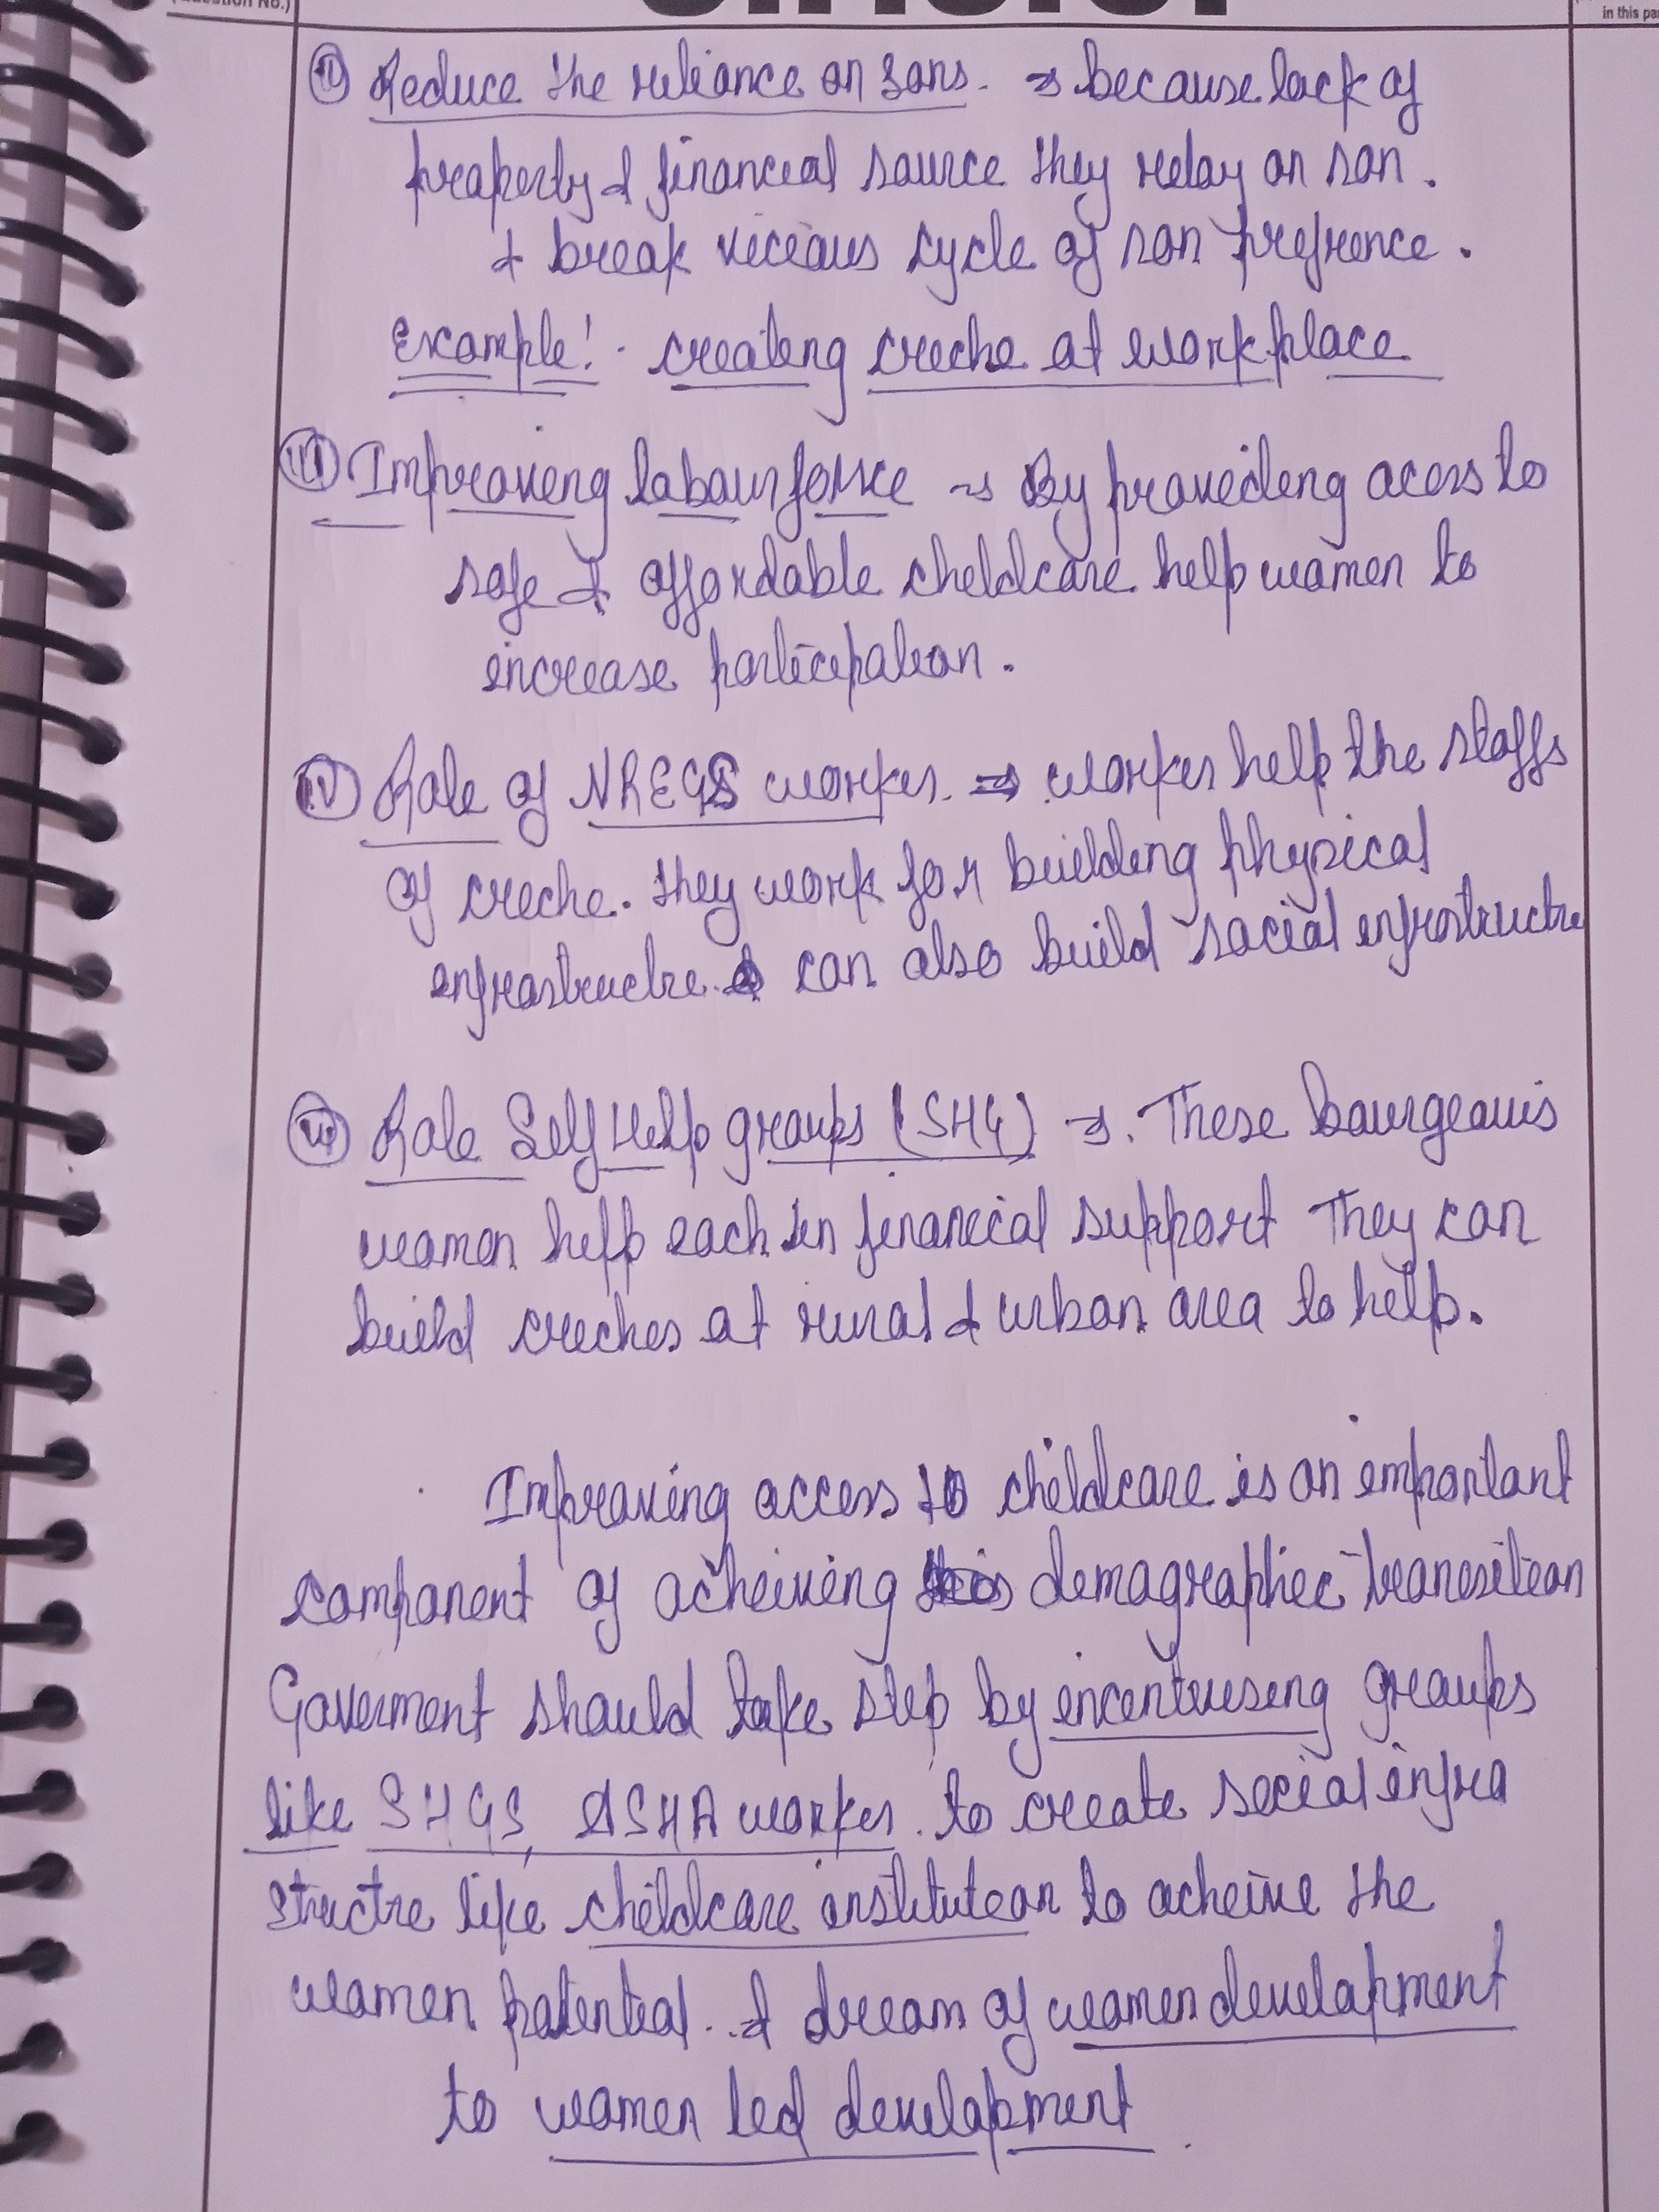 in this pa
(ii) Reduce the reliance on sons. → because lack of
property & financial source they relay on son.
& break vicious cycle of son prefrence.
Example:- creating creche at workplace
(iii) Improving labour force → By providing acess to
safe & affordable childcare help women to
increase participation.
(iv) Role of NREGS worker. → worker help the staffs
of creche. They work for building physical
infrastructre. & can also build social infrastructre
Role Self Help groups (SHG) →. These bourgeouis
women help each in financial support They can
build creches at rural & urban area to help.
Improving access to childcare is an important
component of acheiving this demographic transition
Goverment should take step by incentivising groups
like SHGS, ASHA worker. to create social infra
structre like childcare institution to acheive the
women potential. & dream of women development
to women led development.